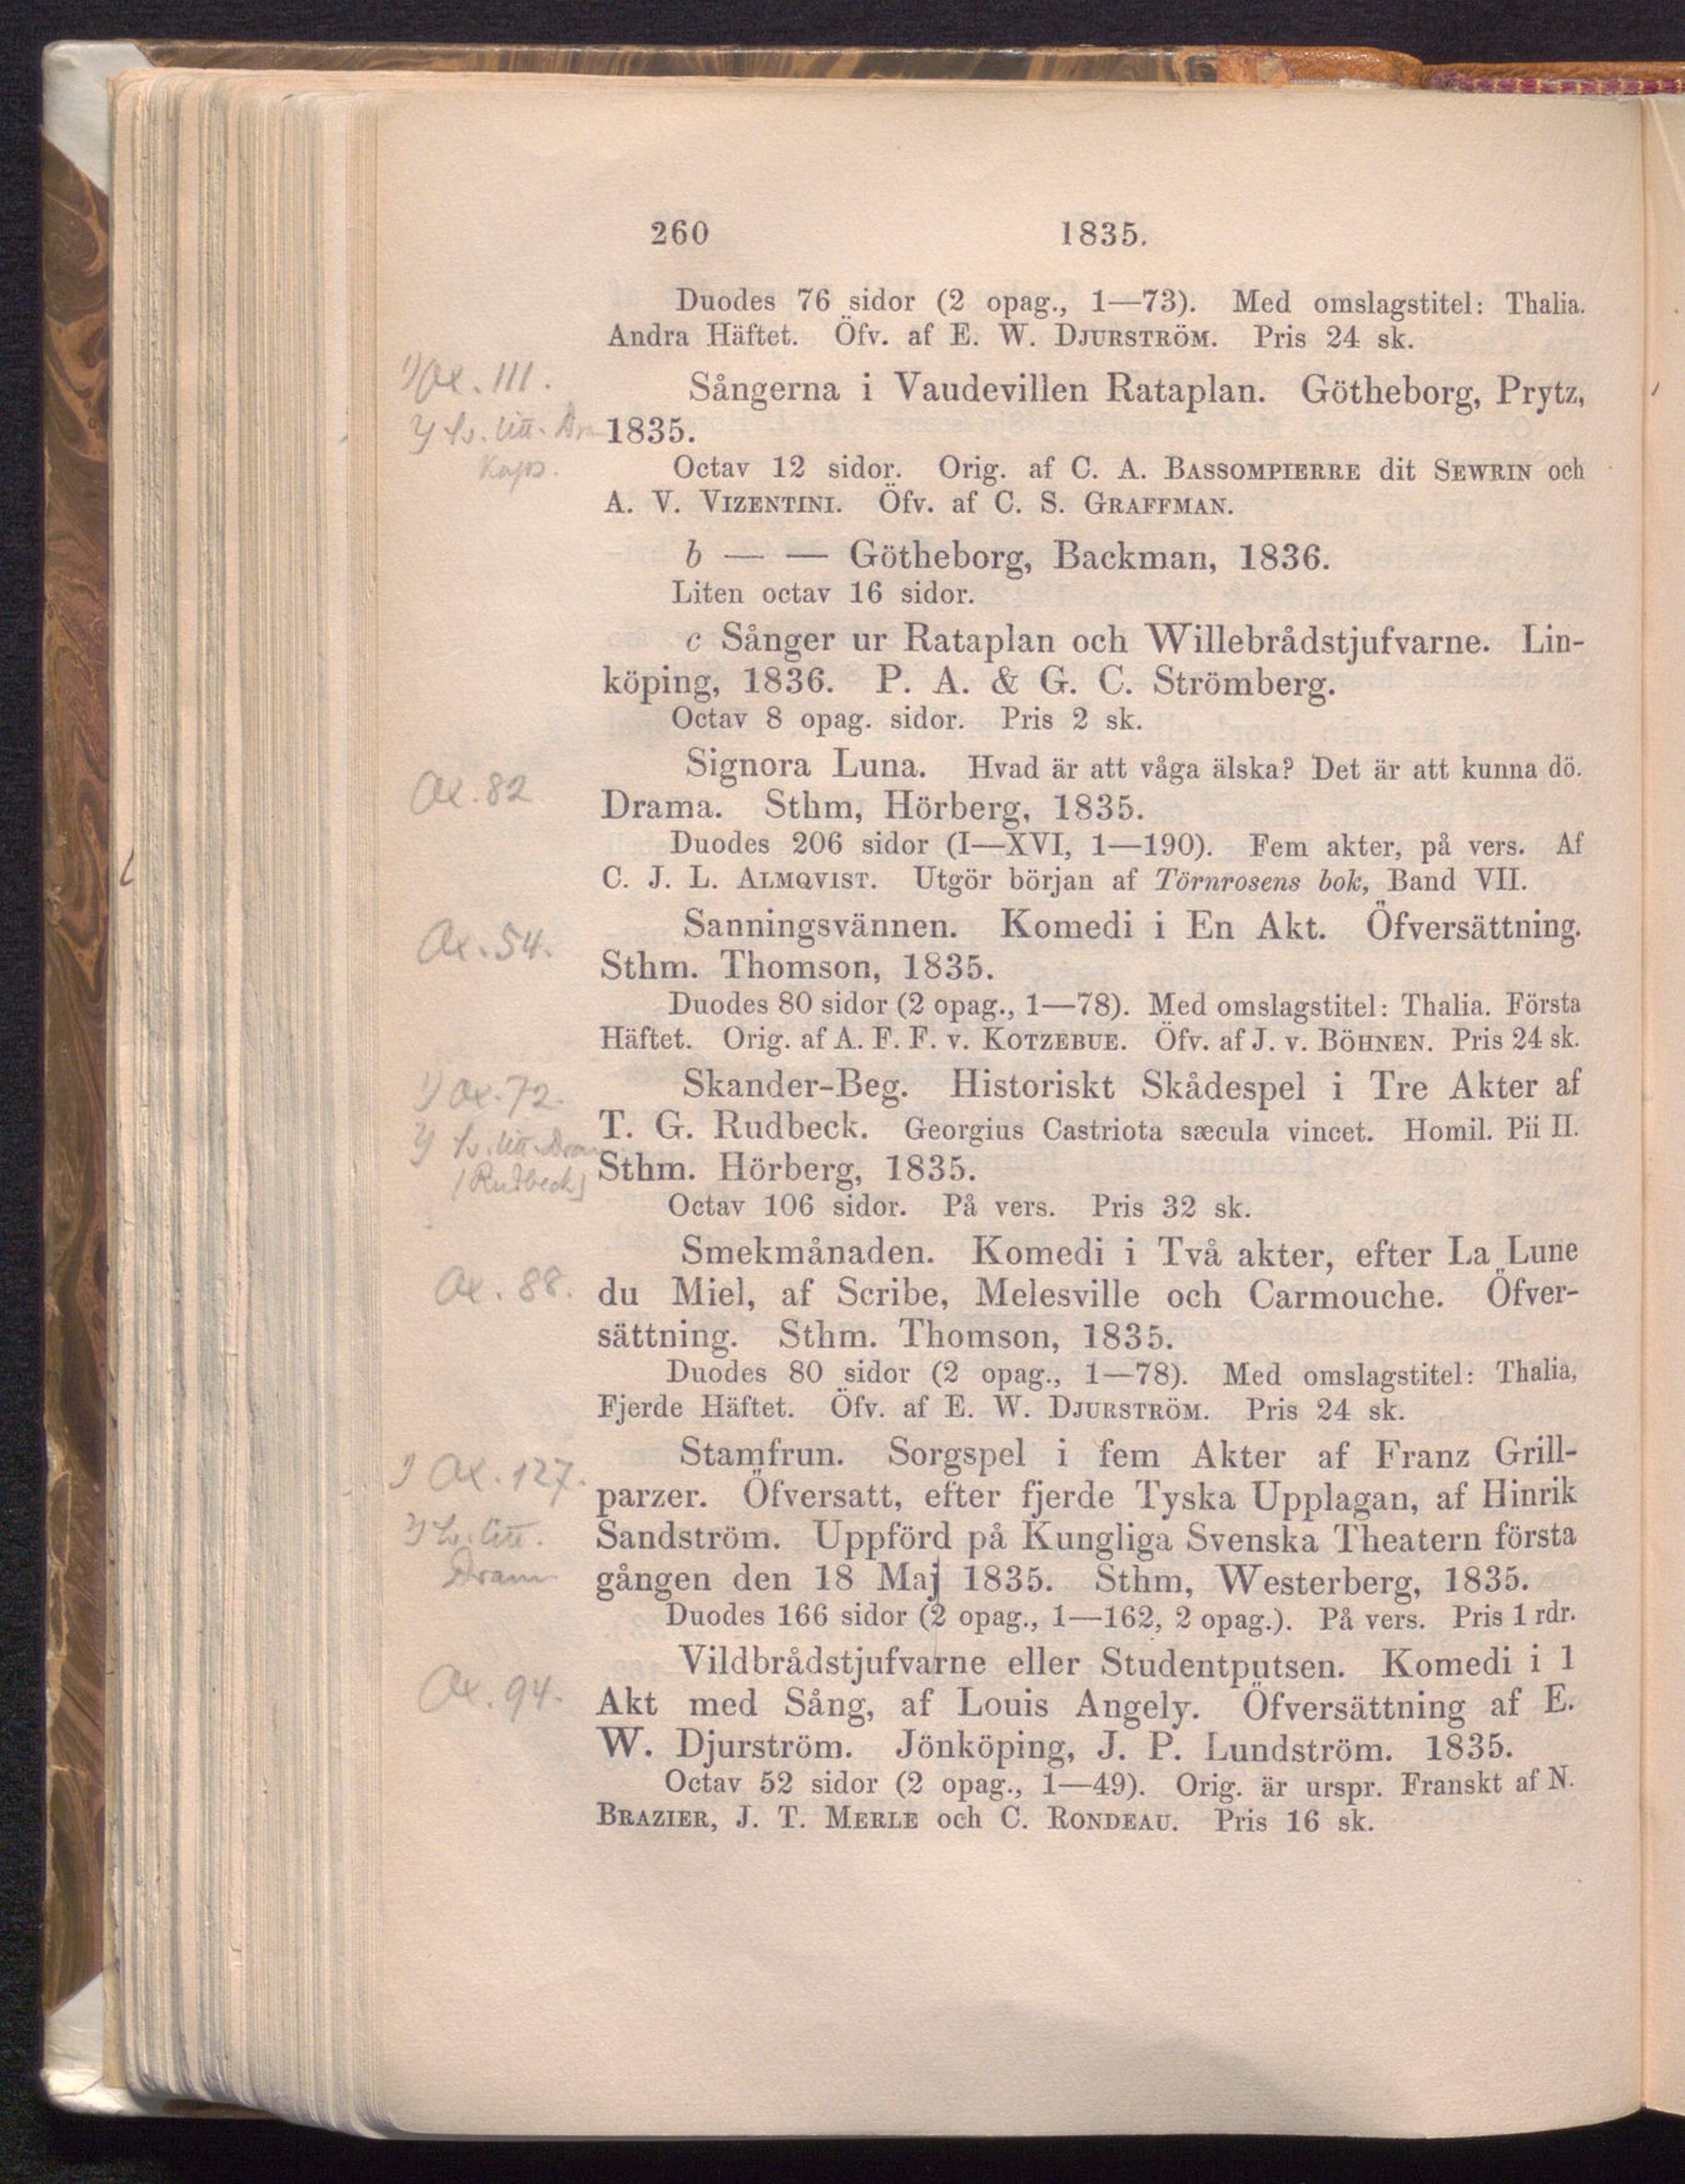 260 1835.
Duodes 76 sidor (2 opag., 1—73). Med omslagstitel: Thalia.
Andra Häftet. Öfv. af E. W. DJURSTRÖM. Pris 24 sk.
1) Ax. 111.
Sångerna i Vaudevillen Rataplan. Götheborg, Prytz,
2) Sv. litt. Dram
1835.
Kaps.
Octav 12 sidor. Orig. af C. A. BASSOMPIERRE dit SEWRIN och
A. V. VIZENTINI. Öfv. af C. S. GRAFFMAN.
b — — Götheborg, Backman, 1836.
Liten octav 16 sidor.
c Sånger ur Rataplan och Willebrådstjufvarne. Lin-
köping, 1836. P. A. & G. C. Strömberg.
Octav 8 opag. sidor. Pris 2 sk.
Signora Luna. Hvad är att våga älska? Det är att kunna dö.
Ax. 82
Drama. Sthm, Hörberg, 1835.
Duodes 206 sidor (I—XVI, 1—190). Fem akter, på vers. Af
C. J. L. ALMQVIST. Utgör början af Törnrosens bok, Band VII.
Sanningsvännen. Komedi i En Akt. Öfversättning.
Ax. 54.
Sthm. Thomson, 1835.
Duodes 80 sidor (2 opag., 1—78). Med omslagstitel: Thalia. Första
Häftet. Orig. af A. F. F. v. KOTZEBUE. Öfv. af J. v. BÖHNEN. Pris 24 sk.
1) Ax. 72.
Skander-Beg. Historiskt Skådespel i Tre Akter af
2) Sv. litt. Dram
T. G. Rudbeck. Georgius Castriota sæcula vincet. Homil. Pii II.
(Rudbeck)
Sthm. Hörberg, 1835.
Octav 106 sidor. På vers. Pris 32 sk.
Smekmånaden. Komedi i Två akter, efter La Lune
Ax. 88.
du Miel, af Scribe, Melesville och Carmouche. Öfver-
sättning. Sthm. Thomson, 1835.
Duodes 80 sidor (2 opag., 1—78). Med omslagstitel: Thalia,
Fjerde Häftet. Öfv. af E. W. DJURSTRÖM. Pris 24 sk.
Stamfrun. Sorgspel i fem Akter af Franz Grill-
1) Ax. 127.
parzer. Öfversatt, efter fjerde Tyska Upplagan, af Hinrik
2) Sv. litt.
Sandström. Uppförd på Kungliga Svenska Theatern första
Dram
gången den 18 Maj 1835. Sthm, Westerberg, 1835.
Duodes 166 sidor (2 opag., 1—162, 2 opag.). På vers. Pris 1 rdr.
Vildbrådstjufvarne eller Studentputsen. Komedi i 1
Ax. 94.
Akt med Sång, af Louis Angely. Öfversättning af E.
W. Djurström. Jönköping, J. P. Lundström. 1835.
Octav 52 sidor (2 opag., 1—49). Orig. är urspr. Franskt af N.
BRAZIER, J. T. MERLE och C. RONDEAU. Pris 16 sk.